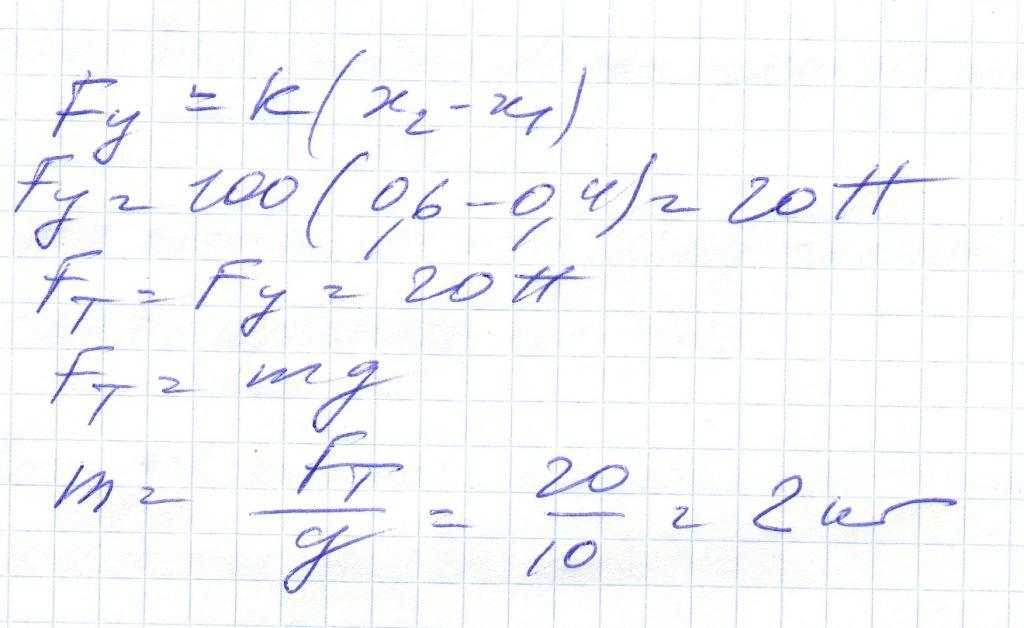 Fу = k(x₂ - x₁)
Fу = 100(0,6 - 0,4) = 20 Н
Fт = Fу = 20 Н
Fт = mg
m = Fт/g = 20/10 = 2 кг